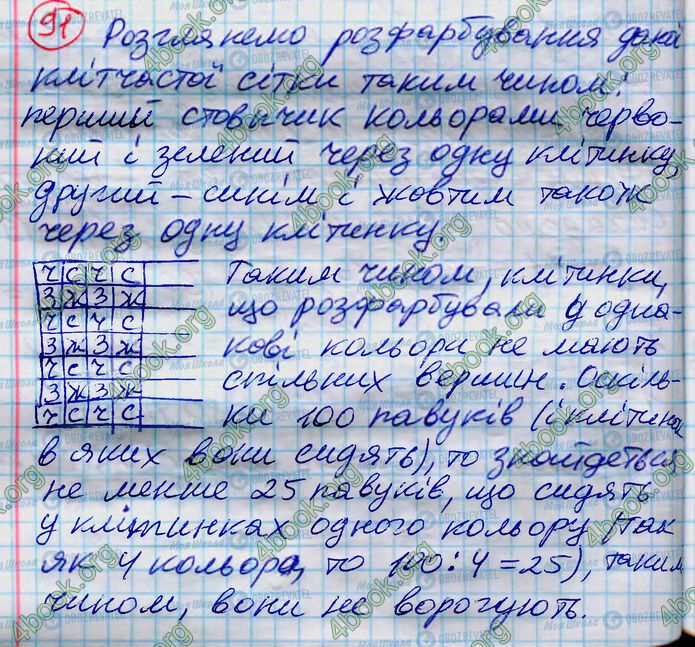 91
Розглянемо розфарбування даної
клітчастої сітки таким чином:
перший стовпчик кольорами черво-
ний і зелений через одну клітинку,
другий – синім і жовтим також
через одну клітинку.
ч с ч с
з ж з ж
ч с ч с
з ж з ж
ч с ч с
з ж з ж
ч с ч с
Таким чином, клітинки,
що розфарбували у одна-
кові кольори не мають
спільних вершин. Оскіль-
ки 100 павуків (і клітинок
в яких вони сидять), то знайдеться
не менше 25 павуків, що сидять
у клітинках одного кольору (так
як 4 кольора, то 100:4=25), таким
чином, вони не ворогують.
4book.org
Моя Школа
OBOZREVATEL